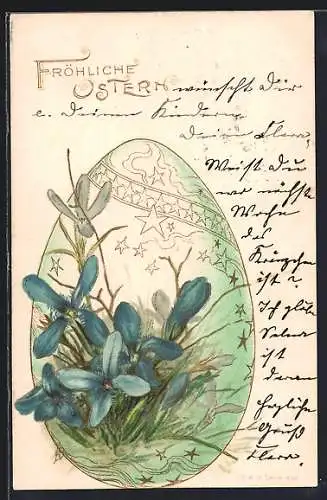 FRÖHLICHE
OSTERN wünscht Dir
u. Deinen Kindern
Deine Klara
Weist Du
wo nächste
Woche
das
Kränzchen
ist?
Ich glaube
ist
daran
herzliche
Gruß
Klara